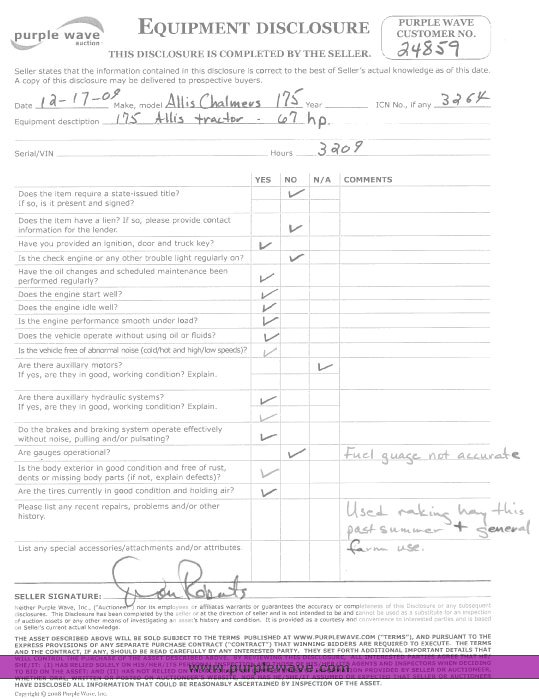 purple wave
auction
EQUIPMENT DISCLOSURE
PURPLE WAVE
CUSTOMER NO.
24859
THIS DISCLOSURE IS COMPLETED BY THE SELLER.
Seller states that the information contained in this disclosure is correct to the best of Seller's actual knowledge as of this date.
A copy of this disclosure may be delivered to prospective buyers.
Date 12-17-09 Make, model Allis Chalmers 175 Year ICN No., if any 3264
Equipment desctiption 175 Allis tractor - 67 hp.
Serial/VIN Hours 3209
YES NO N/A COMMENTS
Does the item require a state-issued title?
If so, is it present and signed?
Does the item have a lien? If so, please provide contact
information for the lender.
Have you provided an ignition, door and truck key?
Is the check engine or any other trouble light regularly on?
Have the oil changes and scheduled maintenance been
performed regularly?
Does the engine start well?
Does the engine idle well?
Is the engine performance smooth under load?
Does the vehicle operate without using oil or fluids?
Is the vehicle free of abnormal noise (cold/hot and high/low speeds)?
Are there auxillary motors?
If yes, are they in good, working condition? Explain.
Are there auxillary hydraulic systems?
If yes, are they in good, working condition? Explain.
Do the brakes and braking system operate effectively
without noise, pulling and/or pulsating?
Are gauges operational? Fuel guage not accurate
Is the body exterior in good condition and free of rust,
dents or missing body parts (if not, explain defects)?
Are the tires currently in good condition and holding air?
Please list any recent repairs, problems and/or other
history.
Used raking hay this
past summer + general
farm use.
List any special accessories/attachments and/or attributes
SELLER SIGNATURE: Ron Roberts
Neither Purple Wave, Inc., ("Auctioneer") nor its employees or affiliates warrants or guarantees the accuracy or completeness of this Disclosure or any subsequent
disclosures. This Disclosure has been completed by the seller or at the direction of seller and is not intended to be and cannot be used as a substitute for an inspection
of auction assets or any other means of investigating an asset's history and condition. It is provided as a courtesy and convenience to interested parties and is based
on Seller's current actual knowledge.
THE ASSET DESCRIBED ABOVE WILL BE SOLD SUBJECT TO THE TERMS PUBLISHED AT WWW.PURPLEWAVE.COM ("TERMS"), AND PURSUANT TO THE
EXPRESS PROVISIONS OF ANY SEPARATE PURCHASE CONTRACT ("CONTRACT") THAT WINNING BIDDERS ARE REQUIRED TO EXECUTE. THE TERMS
AND THE CONTRACT, IF ANY, SHOULD BE READ CAREFULLY BY ANY INTERESTED PARTY. THEY SET FORTH ADDITIONAL IMPORTANT DETAILS THAT
www.purplewave.com
HAVE DISCLOSED ALL INFORMATION THAT COULD BE REASONABLY ASCERTAINED BY INSPECTION OF THE ASSET.
Copyright © 2008 Purple Wave, Inc.